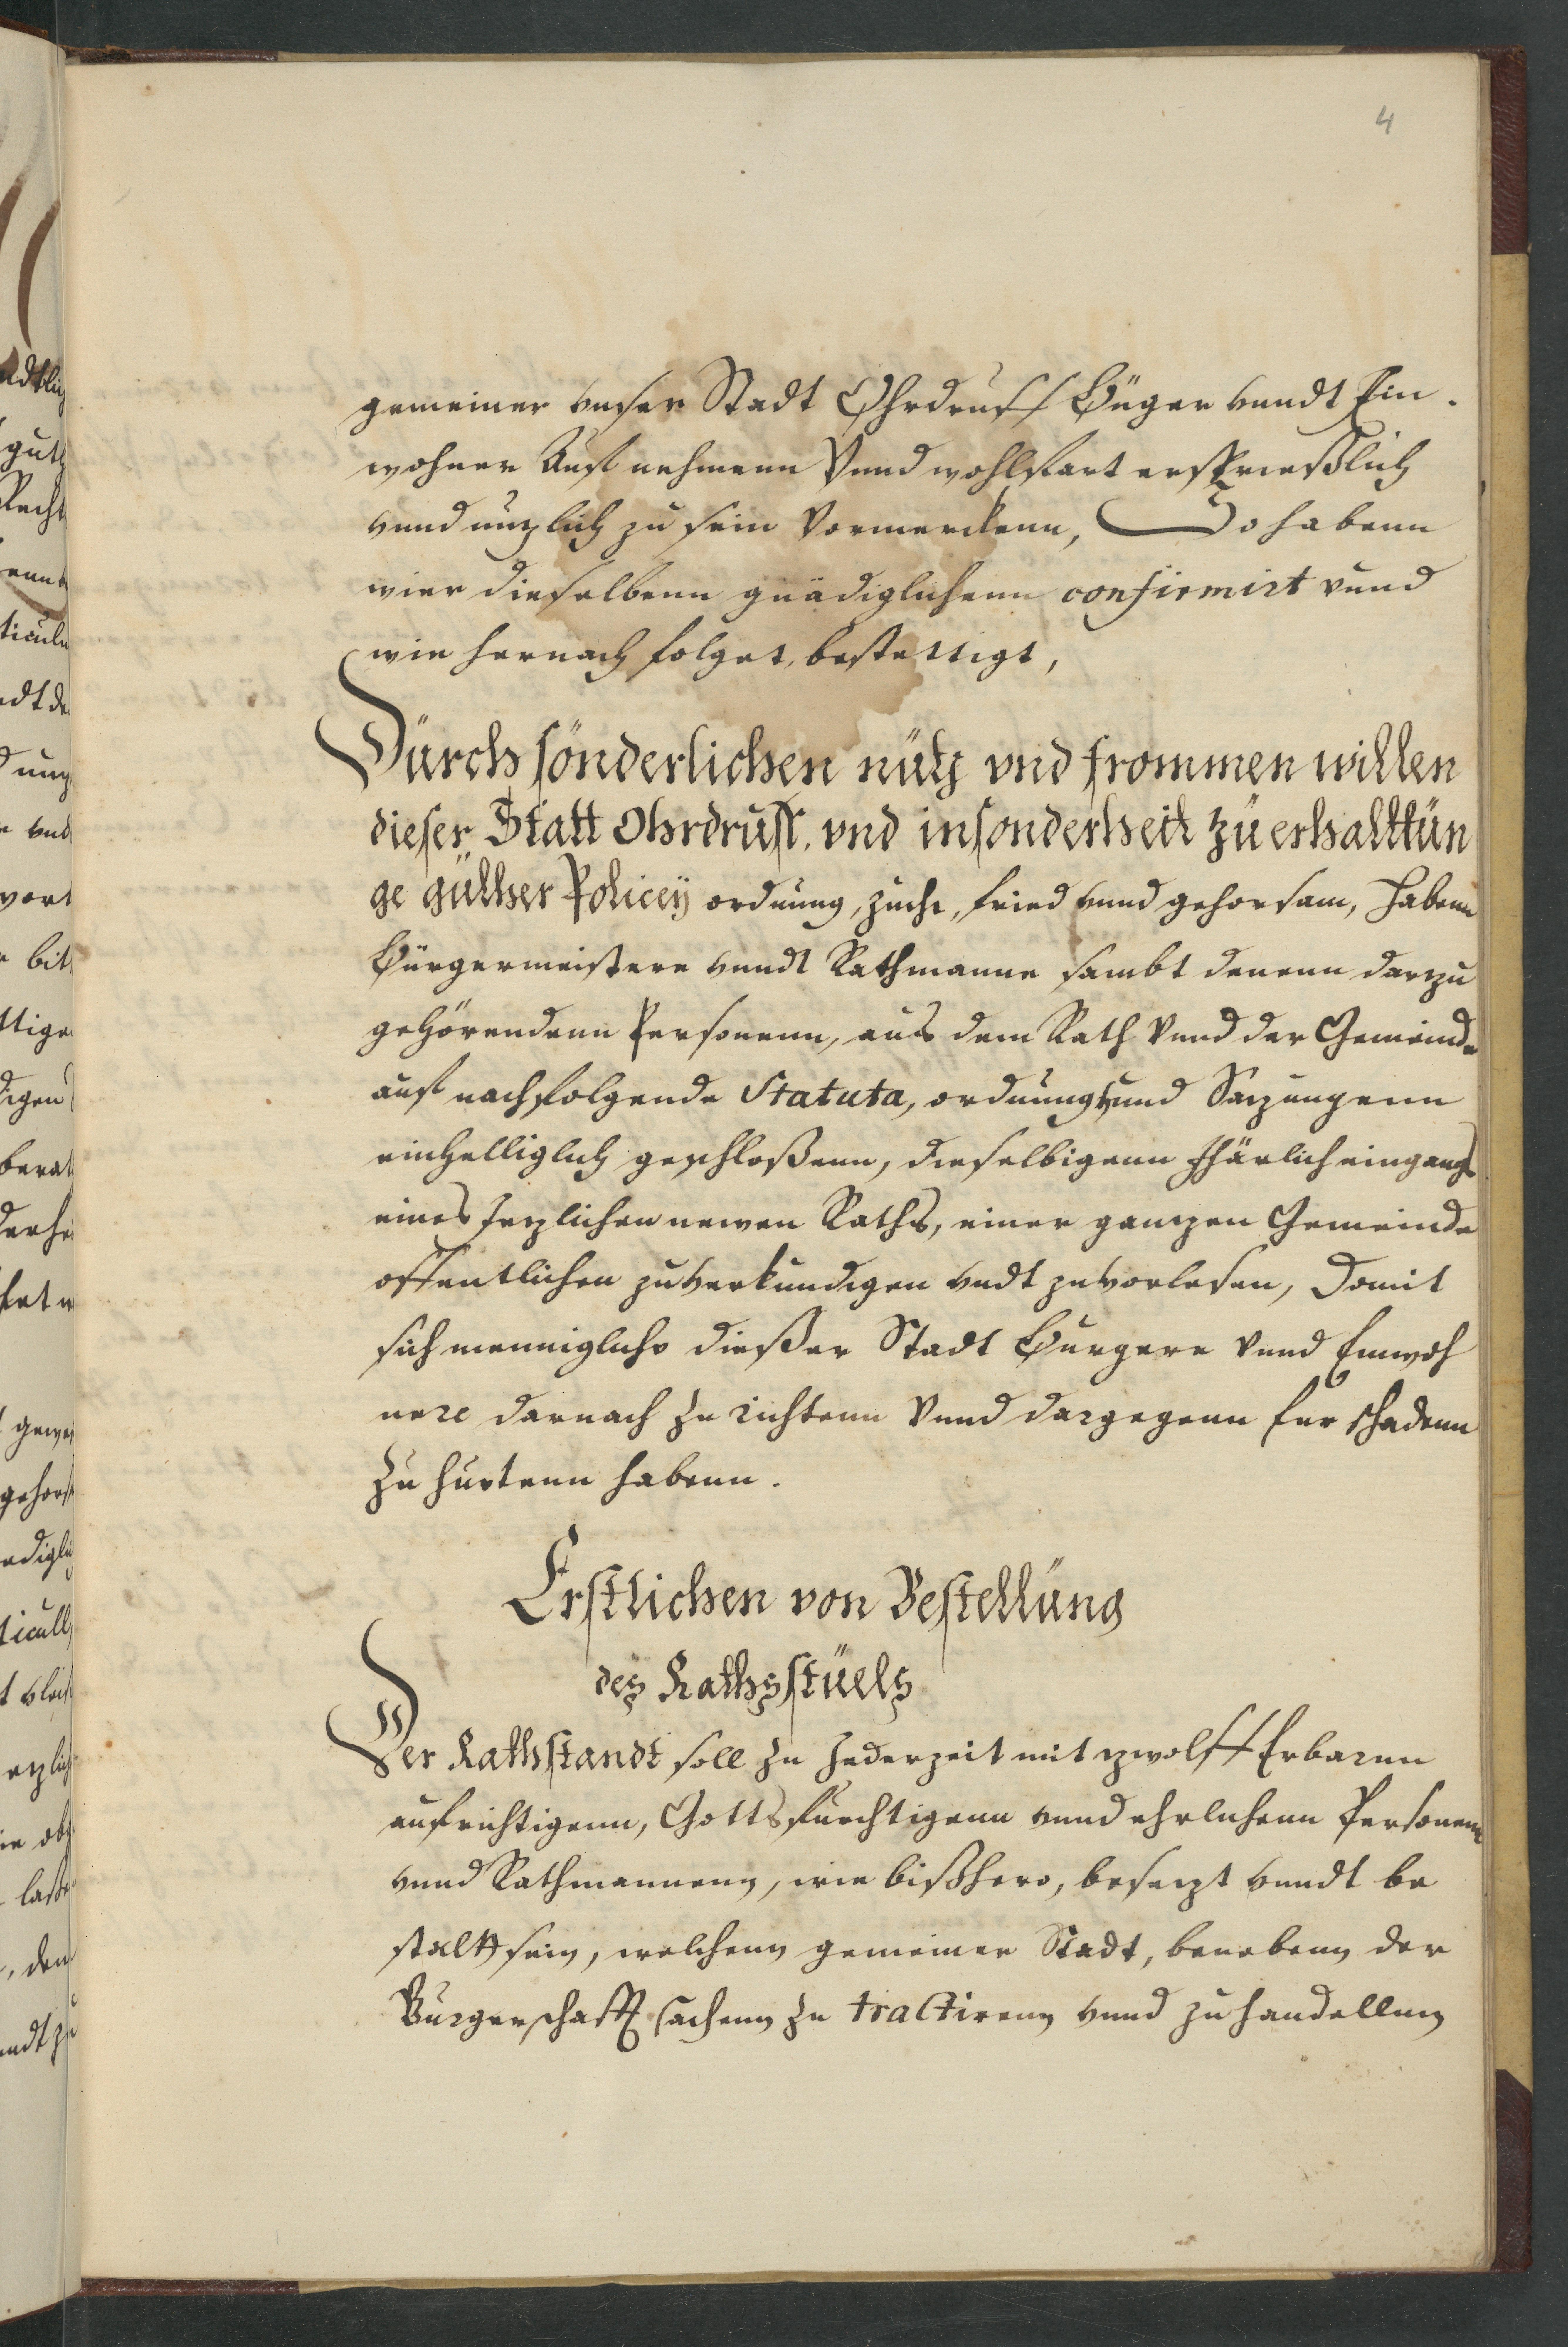 4
gemeiner vnser Stadt Ohrdruff Büger vundt Ein.
wohner Auffnehmenn Vnnd wohlfart ersprießlich
vnnd nuzlich zu sein Vormerckenn, So habenn
wier dieselbenn gnädiglichenn confirmirt vnnd
wie hernach folget, bestettigt,
Dürch sönderlichen nütz vnd frommen willen
dieser Statt Ohrdruff, vnd insonderheit zü erhalttün
ge güther Policeÿ ordnung, zucht, fried vnnd gehorsam, habenn
Bürgermeistere vnndt Rathmanne sambt denenn darzu
gehörendenn Personenn, aus dem Rath Vnnd der Gemeinde
auf nachfolgende Statuta, ordnung vnnd Sazungenn
einhelliglich geschloßenn, dieselbigenn Jharlich eingangs
eines Jezlichen newen Raths, einer ganzen Gemeinde
offentlichen zuverkundigen vndt zuvorlesen, Domit
sich menniglichs dießer Stadt Burgere Vnnd Einwoh
nere darnach zu richtenn Vnnd dargegenn fur schadenn
zu huetenn habenn.
Erstlichen von Bestellüng
des Rathsstüels
Der Rathstandt soll zu Jederzeit mit zwolff Erbarnn
aufrichtigenn, Gottsfurchtigenn vnnd ehrlichenn Personenn
vnnd Rathmannenn, wie bißhero, besezt vnndt be
staltt sein, welchenn gemeiner Stadt, benebenn der
Burgerschafft sachenn zu tractirenn vnnd zu handellnn